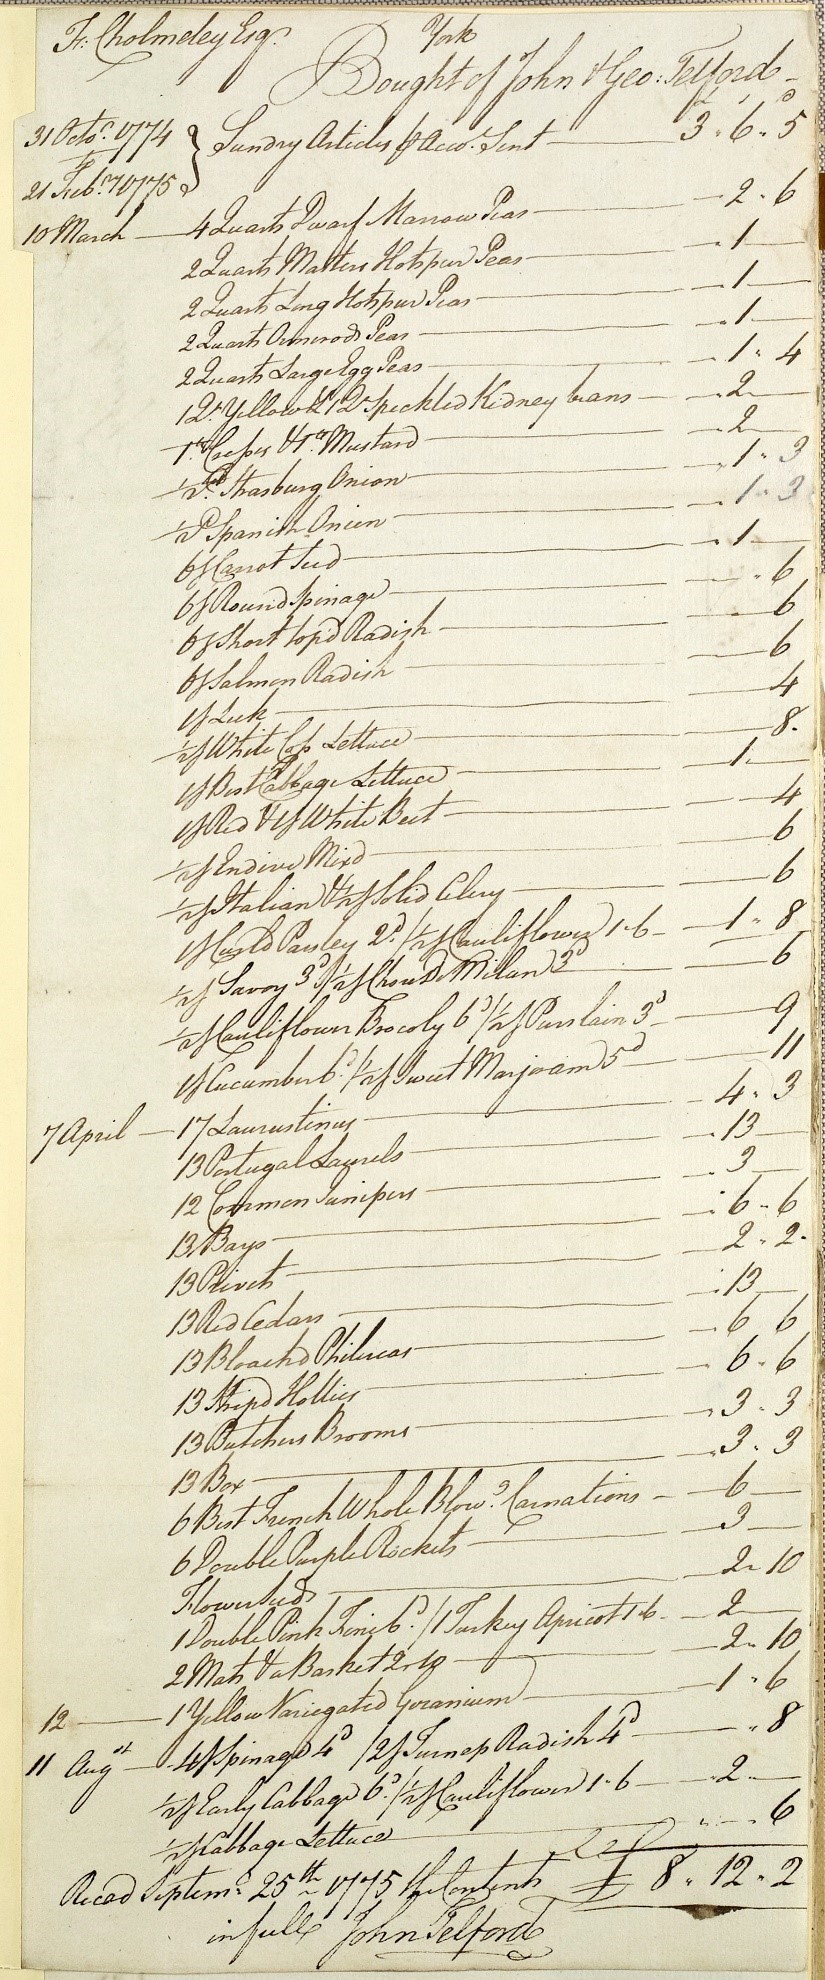 Fr: Cholmeley Esqr. York
Bought of John & Geo: Telford
31 Octor. 1774 Sundry Articles pr Acco. Sent 3 " 6 " 5
to
21 Febry 1775
10 March 4 Quarts Dwarf Marrow Peas 2 " 6
2 Quarts Masters Hotspur Peas 1
2 Quarts Long Hotspur Peas 1
2 Quarts Ormerods Peas 1
2 Quarts Large Egg Peas 1 " 4
1 Qt. Yellow & 1 Qt Speckled Kidney beans 2
1 Cresses & 1 Mustard 2
½ Pd Strasburg Onion 1 " 3
½ Pd Spanish Onion 1 " 3
6 ℥ Carrot Seed 1
6 ℥ Round Spinage 6
6 ℥ Short top'd Radish 6
6 ℥ Salmon Radish 6
1 ℥ Leek 4
½ ℥ White Cos Lettuce 8
1 ℥ Best Cabbage Lettuce 1
1 ℥ Red & 1 ℥ White Beet 4
½ ℥ Endive Mixd 6
½ ℥ Italian & ½ ℥ Solid Celery 6
1 ℥ Curld Parsley 2d / ½ ℥ Cauliflower 1-6 1 " 8
½ ℥ Savoy 3d / ½ ℥ Chou De Milan 3d 6
½ ℥ Cauliflower Brocoly 6d / ½ ℥ Purslain 3d 9
1 ℥ Cucumber 6d. / ½ ℥ Sweet Marjoram 5d 11
7 April 17 Laurustinus 4 " 3
13 Portugal Laurels 13
12 Common Junipers 3
13 Bays 6 " 6
13 Privets 2 " 2
13 Red Cedars 13
13 Bloached Philireas 6 6
13 Stripd Hollies 6 " 6
13 Butchers Brooms 3 " 3
13 Box 3 " 3
6 Best French Whole Blow.s Carnations 6
6 Double Purple Rockets 3
Flower Seeds 2 " 10
1 Double Pink 6d. / 1 Turkey Apricot 1-6 2
2 Mats & a Basket 2 " 10
12 1 Yellow Variegated Geranium 1 " 6
11 Augst 4 ℥ Spinage 4d / 2 ℥ Turnep Radish 4d " 8
½ ℥ Early Cabbage 6d. / ½ ℥ Cauliflower 1-6 2
½ ℥ Cabbage Lettuce 6
Recd Septemr 25th 1775 the Contents £ 8 " 12 " 2
in full John Telford